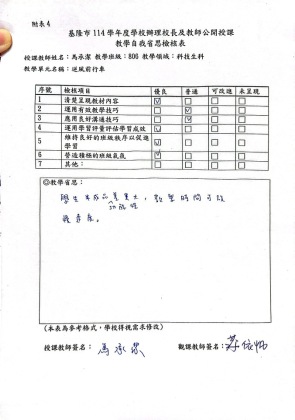 附表 4
基隆市 114 學年度學校辦理校長及教師公開授課
教學自我省思檢核表
授課教師姓名：馬承潔 教學班級：806 教學領域：科技生科
教學單元名稱：逆風前行車
序號 檢核項目 優良 普通 可改進 未呈現
1 清楚呈現教材內容 ☑ ☐ ☐ ☐
2 運用有效教學技巧 ☐ ☑ ☐ ☐
3 應用良好溝通技巧 ☐ ☑ ☐ ☐
4 運用學習評量評估學習成效 ☑ ☐ ☐ ☐
5 維持良好的班級秩序以促進學習 ☑ ☐ ☐ ☐
6 營造積極的班級氣氛 ☑ ☐ ☐ ☐
7 其他：
◎教學省思：
學生 成品 差異大，調整時間可改
功能性
(本表為參考格式，學校得視需求修改)
授課教師簽名：馬承潔 觀課教師簽名：